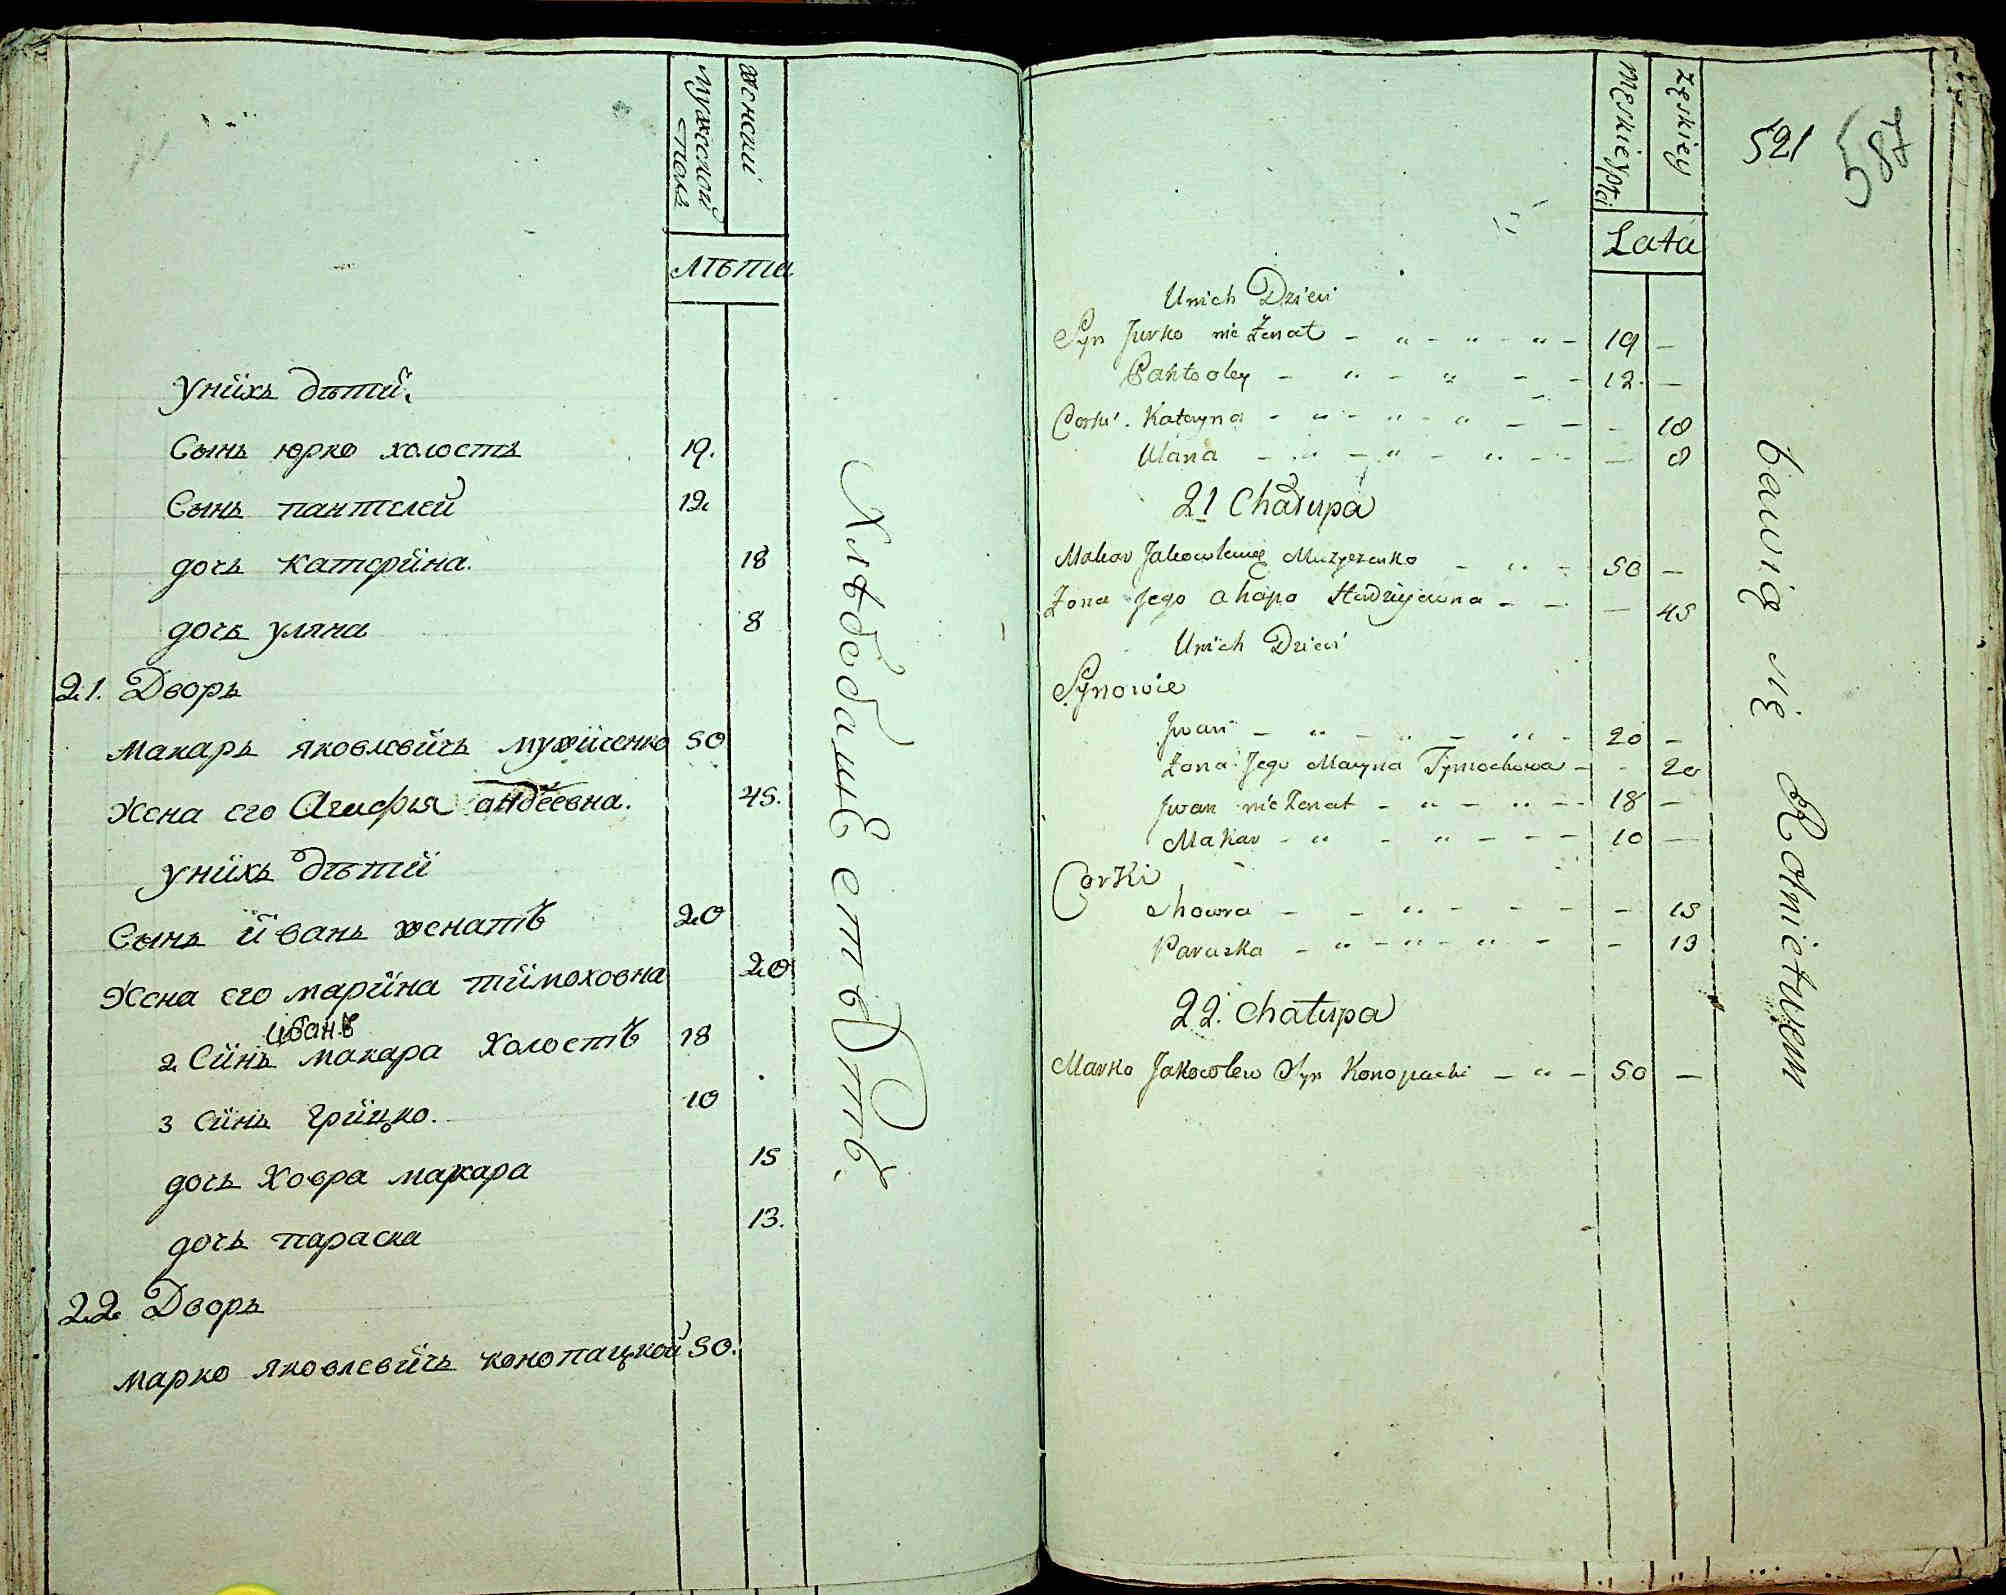 Мужеской пола
женской
Лѣта
уныхъ дѣтей.
Сынъ юрко холостъ 19.
Сынъ пантелей 12.
дочь катерйна. 18
дочь уляна 8
21. Дворъ
макаръ яковлевичь мужйченко 50
Жена его Агафия андеевна. 45.
унйхъ дѣтей
Сынъ йванъ женатъ 20
Жена его марйна тймоховна 20
иванъ
2 Сйнъ макара Холостъ 18
3 Сйнъ грйцко. 10
дочь Ховра макара 15
дочь параска 13.
22. Дворъ
марко яковлевйчь конопацкой 50.
Хлѣбобашествътъ.
Męskiey płci
Zęskiey
521
587
Lata
Unich Dzieci
Syn Jurko nie Żenat 19 –
Pantoley 12. –
Corki. Kateryna – 18
Ulana – 8
21 Chałupa
Makar Jakowlewicz Mużyczenko 50 –
Żona Jego Ahapa Handrijewna – 45
Unich Dzieci
Synowie
Jwan 20 –
Żona Jego Maryna Tymochowa – 20
Jwan nie Żenat 18 –
Makar 10 –
Corki
Chowra – 15
Paraska – 13
22. Chałupa
Marko Jakowlew Syn Konopacki 50 –
bawią się Rolnictwem